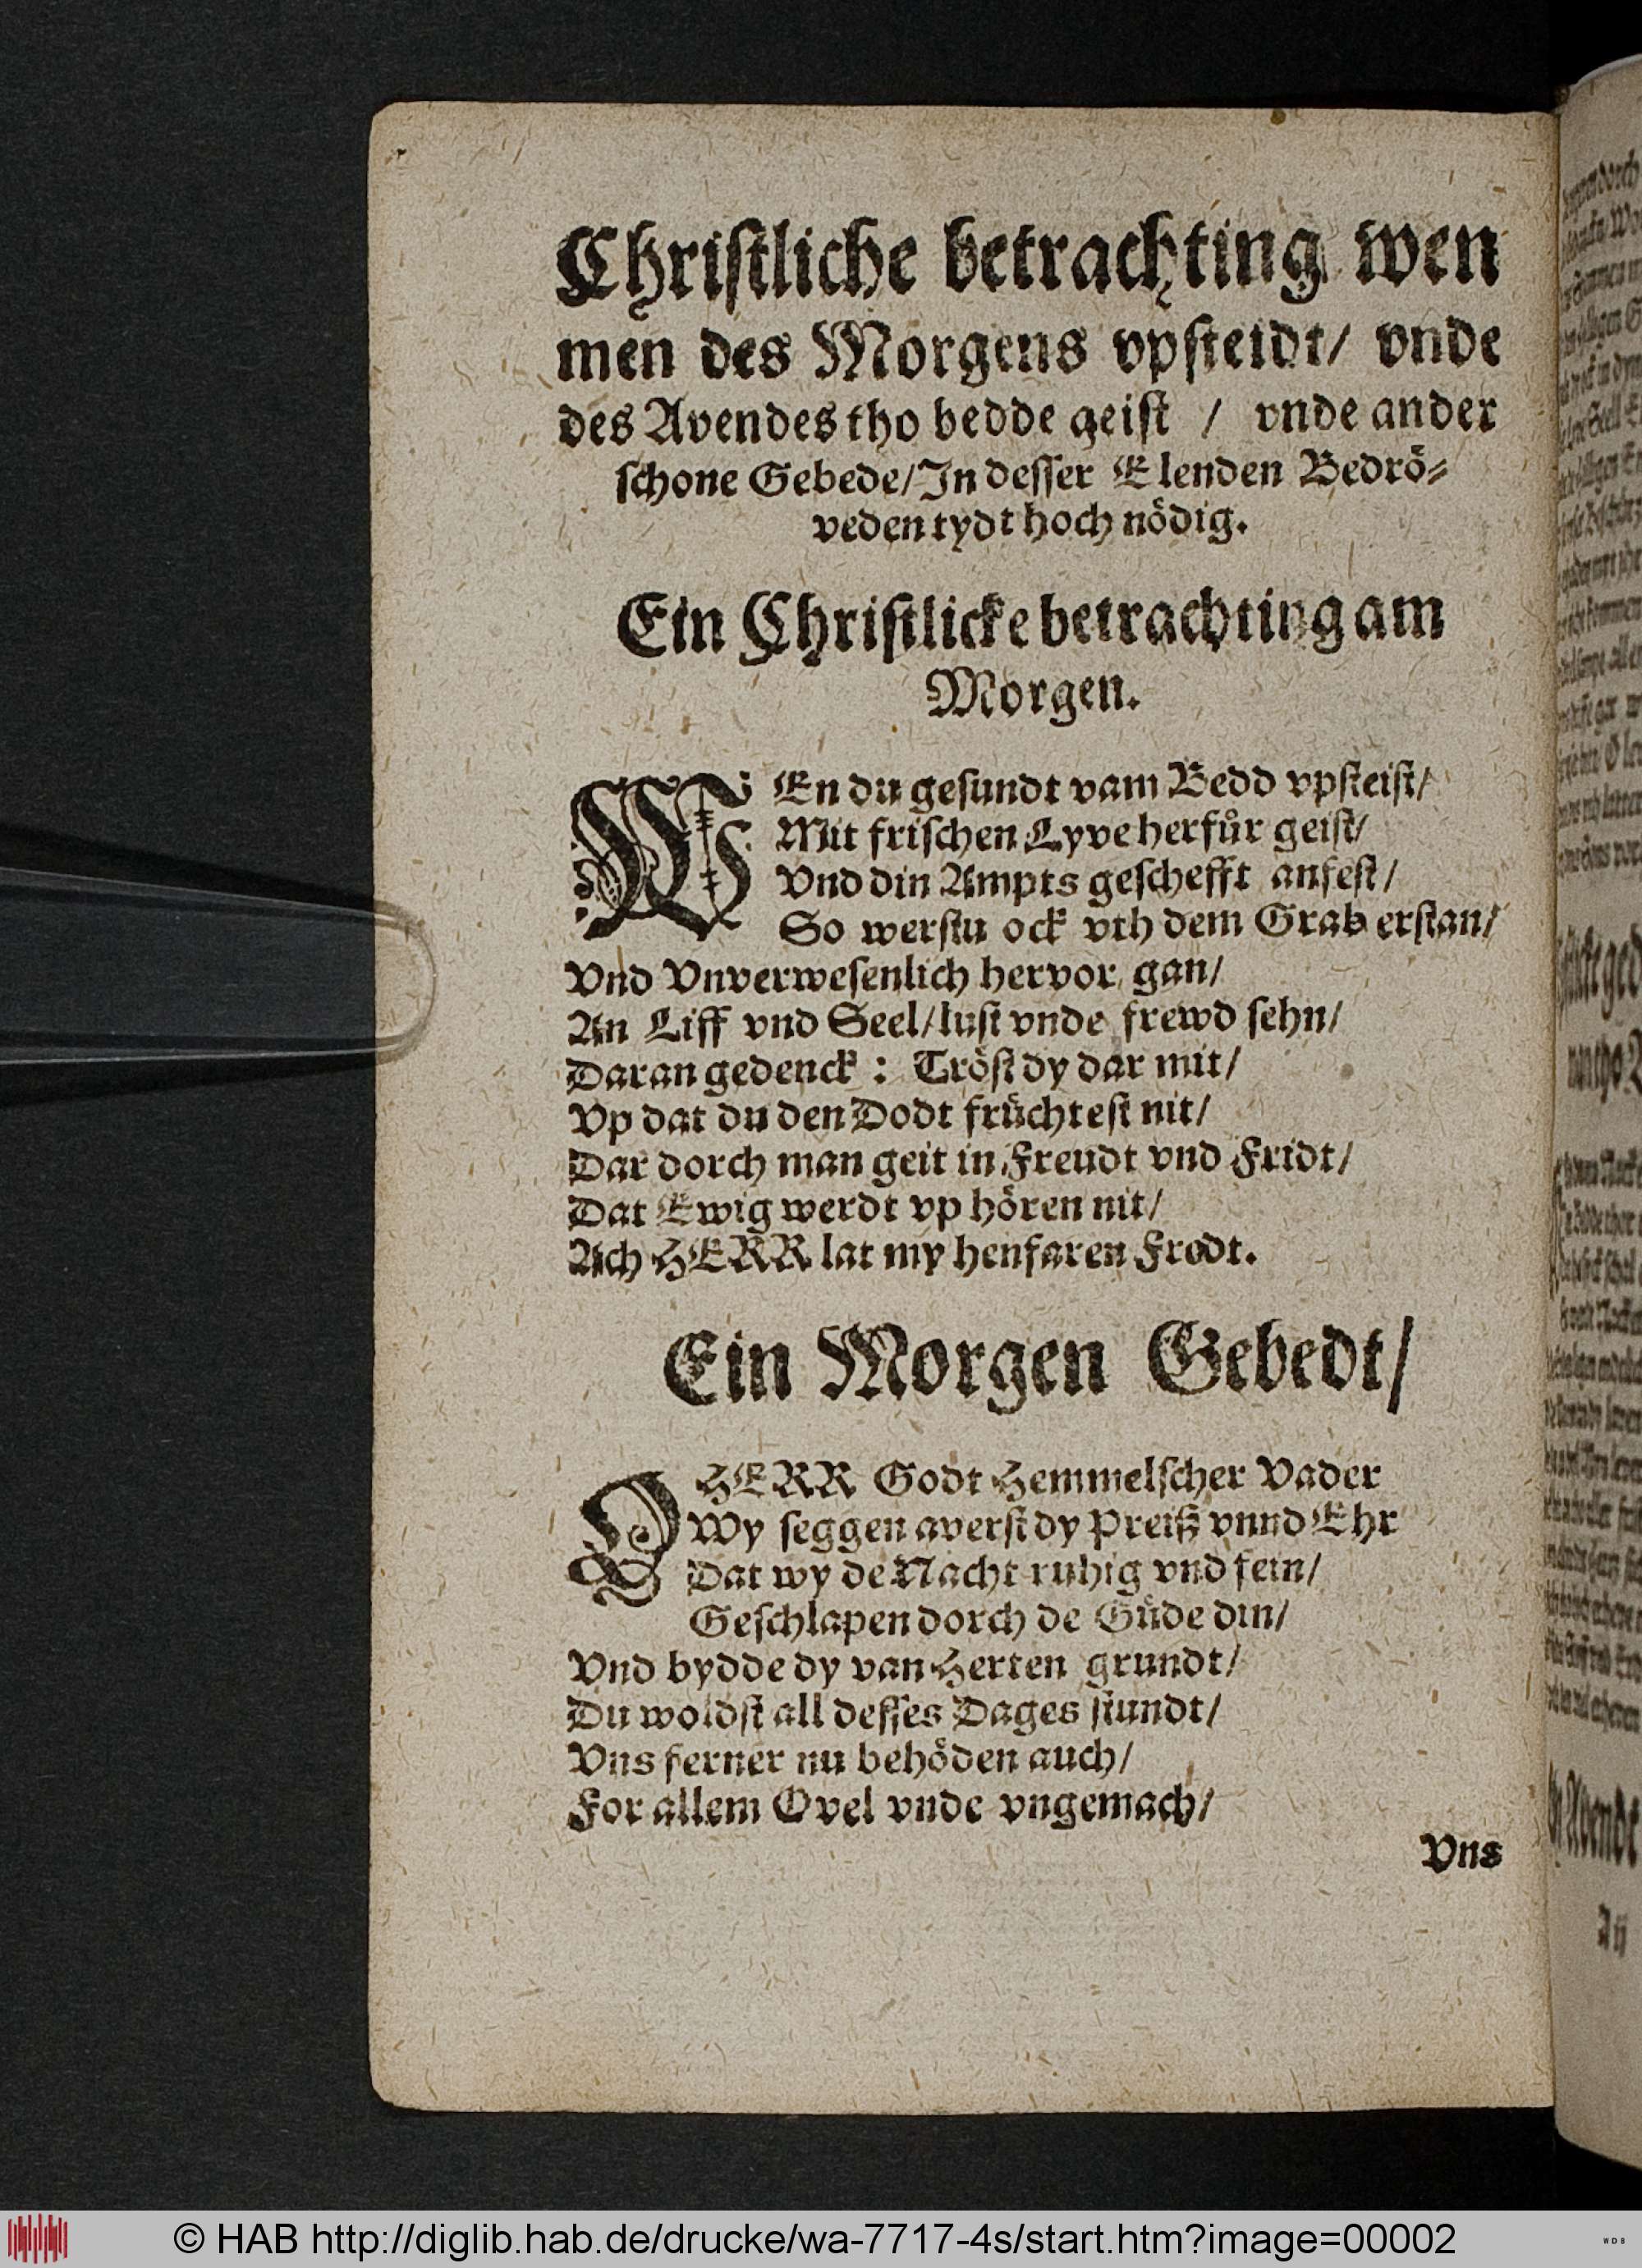 Christliche betrachting wen
men des Morgens vpsteidt/ vnde
des Avendes tho bedde geist / vnde ander
schone Gebede/In desser Elenden Bedrö⸗
veden tydt hoch nödig.
Ein Christlicke betrachting am
Morgen.
WEn du gesundt vam Bedd vpsteist/
Mit frischen Lyve herfůr geist/
Vnd din Ampts geschefft anfest/
So werstu ock vth dem Grab erstan/
Vnd Vnverwesenlich hervor gan/
An Liff vnd Seel/lust vnde frewd sehn/
Daran gedenck : Tröst dy dar mit/
Vp dat du den Dodt früchtest nit/
Dar dorch man geit in Freudt vnd Fridt/
Dat Ewig werdt vp hören nit/
Ach HERR lat my henfaren Frodt.
Ein Morgen Gebedt/
O HERR Godt Hemmelscher Vader
Wy seggen averst dy Preiß vnnd Ehr
Dat wy de Nacht ruhig vnd fein/
Geschlapen dorch de Güde din/
Vnd bydde dy van Herten grundt/
Du woldst all desses Dages stundt/
Vns ferner nu behöden auch/
For allem Ovel vnde vngemach/
Vns
A ij
© HAB http://diglib.hab.de/drucke/wa-7717-4s/start.htm?image=00002
WDB